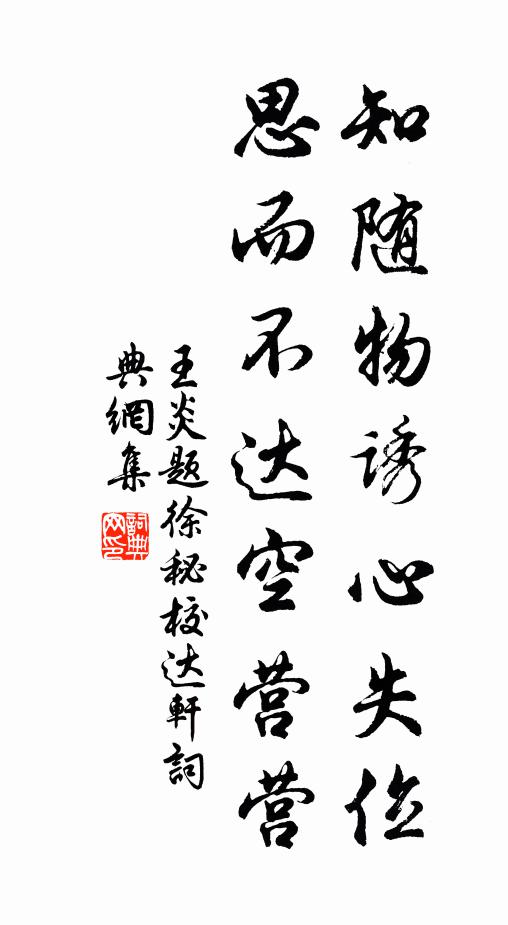 知随物诱心失位
思而不达空营营
王炎题徐秘校达軒詞
典網集
詞典
网印